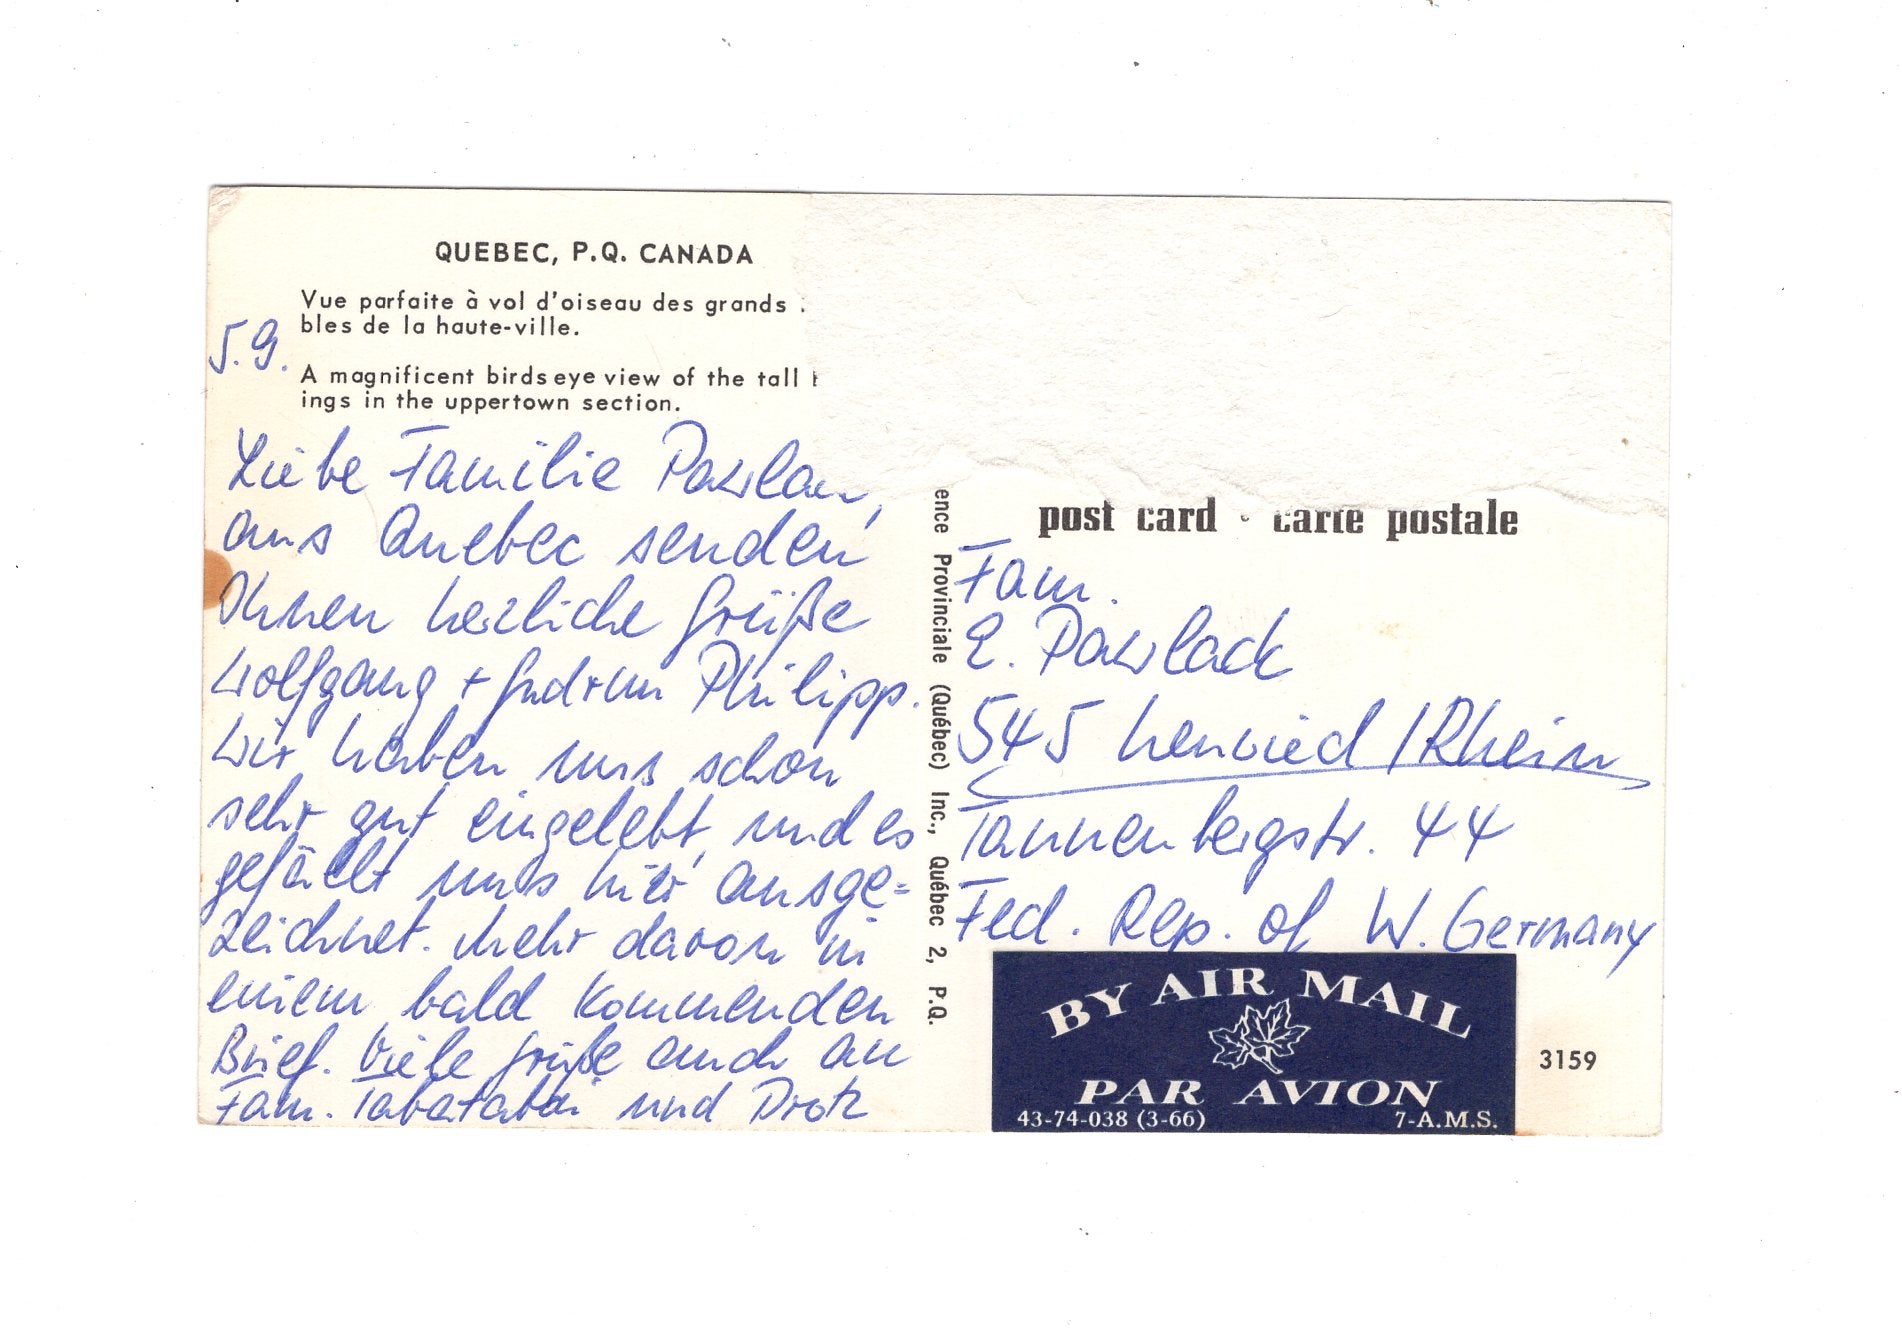 QUEBEC, P.Q. CANADA
Vue parfaite à vol d'oiseau des grands
bles de la haute-ville.
5.9.
A magnificent birds eye view of the tall
ings in the uppertown section.
Liebe Familie Pawlac,
aus Quebec senden
Ihnen herzliche Grüße
Wolfgang + Gudrun Philipp.
Wir haben uns schon
sehr gut eingelebt, und es
gefällt uns hier ausge=
zeichnet. Mehr davon in
einem bald kommenden
Brief. Viele Grüße auch an
Fam. Tabatabai und Drotz
ence Provinciale (Québec) Inc., Québec 2, P.Q.
post card · carte postale
Fam.
E. Pawlack
545 Neuwied / Rhein
Tannenbergstr. 44
Fed. Rep. of W. Germany
BY AIR MAIL
PAR AVION
43-74-038 (3-66) 7-A.M.S.
3159